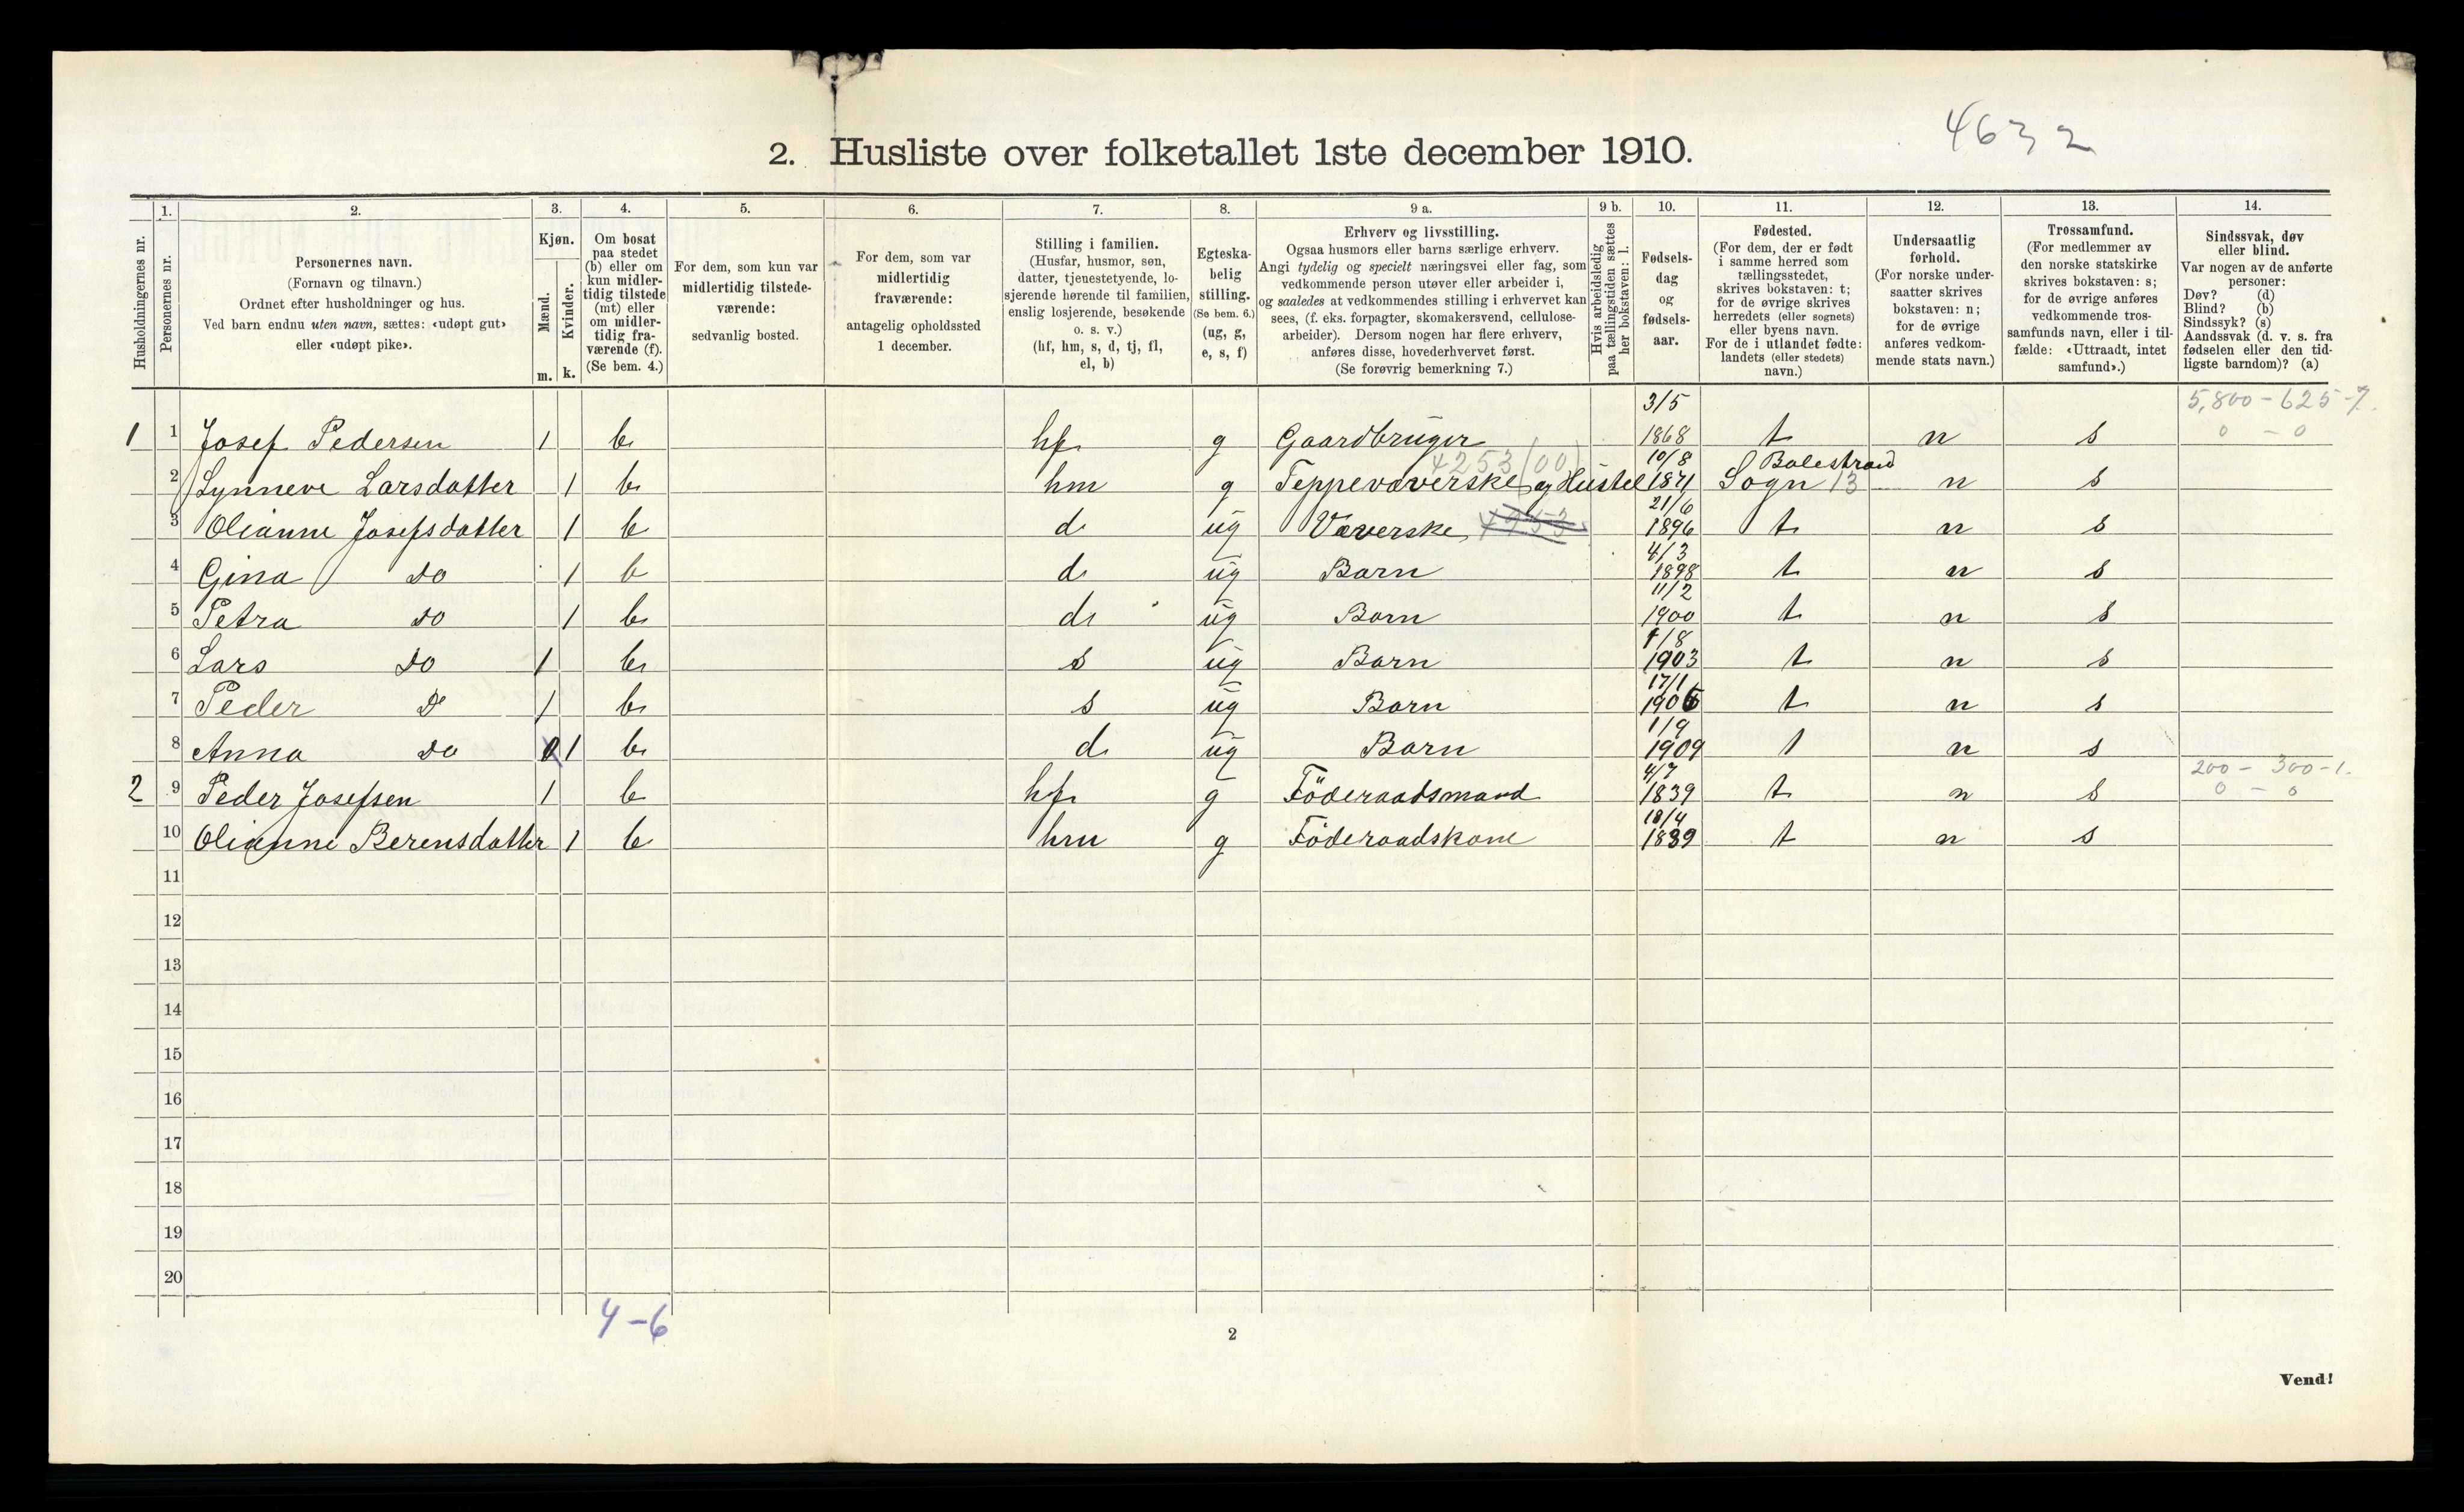 4632
2. Husliste over folketallet 1ste december 1910.
Husholdningernes nr.
1.
Personernes nr.
2.
Personernes navn.
(Fornavn og tilnavn.)
Ordnet efter husholdninger og hus.
Ved barn endnu uten navn, sættes: «udøpt gut»
eller «udøpt pike».
3.
Kjøn.
Mænd.
Kvinder.
m. k.
4.
Om bosat
paa stedet
(b) eller om
kun midler-
tidig tilstede
(mt) eller
om midler-
tidig fra-
værende (f).
(Se bem. 4.)
5.
For dem, som kun var
midlertidig tilstede-
værende:
sedvanlig bosted.
6.
For dem, som var
midlertidig
fraværende:
antagelig opholdssted
1 december.
7.
Stilling i familien.
(Husfar, husmor, søn,
datter, tjenestetyende, lo-
sjerende hørende til familien,
enslig losjerende, besøkende
o. s. v.)
(hf, hm, s, d, tj, fl,
el, b)
8.
Egteska-
belig
stilling.
(Se bem. 6.)
(ug, g,
e, s, f)
9 a.
Erhverv og livsstilling.
Ogsaa husmors eller barns særlige erhverv.
Angi tydelig og specielt næringsvei eller fag, som
vedkommende person utøver eller arbeider i,
og saaledes at vedkommendes stilling i erhvervet kan
sees, (f. eks. forpagter, skomakersvend, cellulose-
arbeider). Dersom nogen har flere erhverv,
anføres disse, hovederhvervet først.
(Se forøvrig bemerkning 7.)
9 b.
Hvis arbeidsledig
paa tællingstiden sættes
her bokstaven: l.
10.
Fødsels-
dag
og
fødsels-
aar.
11.
Fødested.
(For dem, der er født
i samme herred som
tællingsstedet,
skrives bokstaven: t;
for de øvrige skrives
herredets (eller sognets)
eller byens navn.
For de i utlandet fødte:
landets (eller stedets)
navn.)
12.
Undersaatlig
forhold.
(For norske under-
saatter skrives
bokstaven: n;
for de øvrige
anføres vedkom-
mende stats navn.)
13.
Trossamfund.
(For medlemmer av
den norske statskirke
skrives bokstaven: s;
for de øvrige anføres
vedkommende tros-
samfunds navn, eller i til-
fælde: «Uttraadt, intet
samfund».)
14.
Sindssvak, døv
eller blind.
Var nogen av de anførte
personer:
Døv? (d)
Blind? (b)
Sindssyk? (s)
Aandssvak (d. v. s. fra
fødselen eller den tid-
ligste barndom)? (a)
5,800 - 625 - 7.
1 1 Josef Pedersen 1 b hf g Gaardbruger 3/5 1868 t n s 0 - 0
4253 (00)
2 Synneve Larsdatter 1 b hm g Teppevæverske og Hustel 10/8 1871 Sogn Balestrand 13 n s
3 Olianne Josefsdatter 1 b d ug Væverske 4253 21/6 1896 t n s
4 Gina do 1 b d ug Barn 4/3 1898 t n s
5 Petra do 1 b d ug Barn 11/2 1900 t n s
6 Lars do 1 b s ug Barn 1/8 1903 t n s
7 Peder do 1 b s ug Barn 17/1 1906 t n s
8 Anna do 1 b d ug Barn 1/9 1909 t n s
200 - 300 - 1.
2 9 Peder Josefsen 1 b hf g Föderaadsmand 4/7 1839 t n s 0 - 0
10 Olianne Berensdatter 1 b hm g Föderaadskone 18/4 1839 t n s
11
12
13
14
15
16
17
18
19
20
4-6
2
Vend!